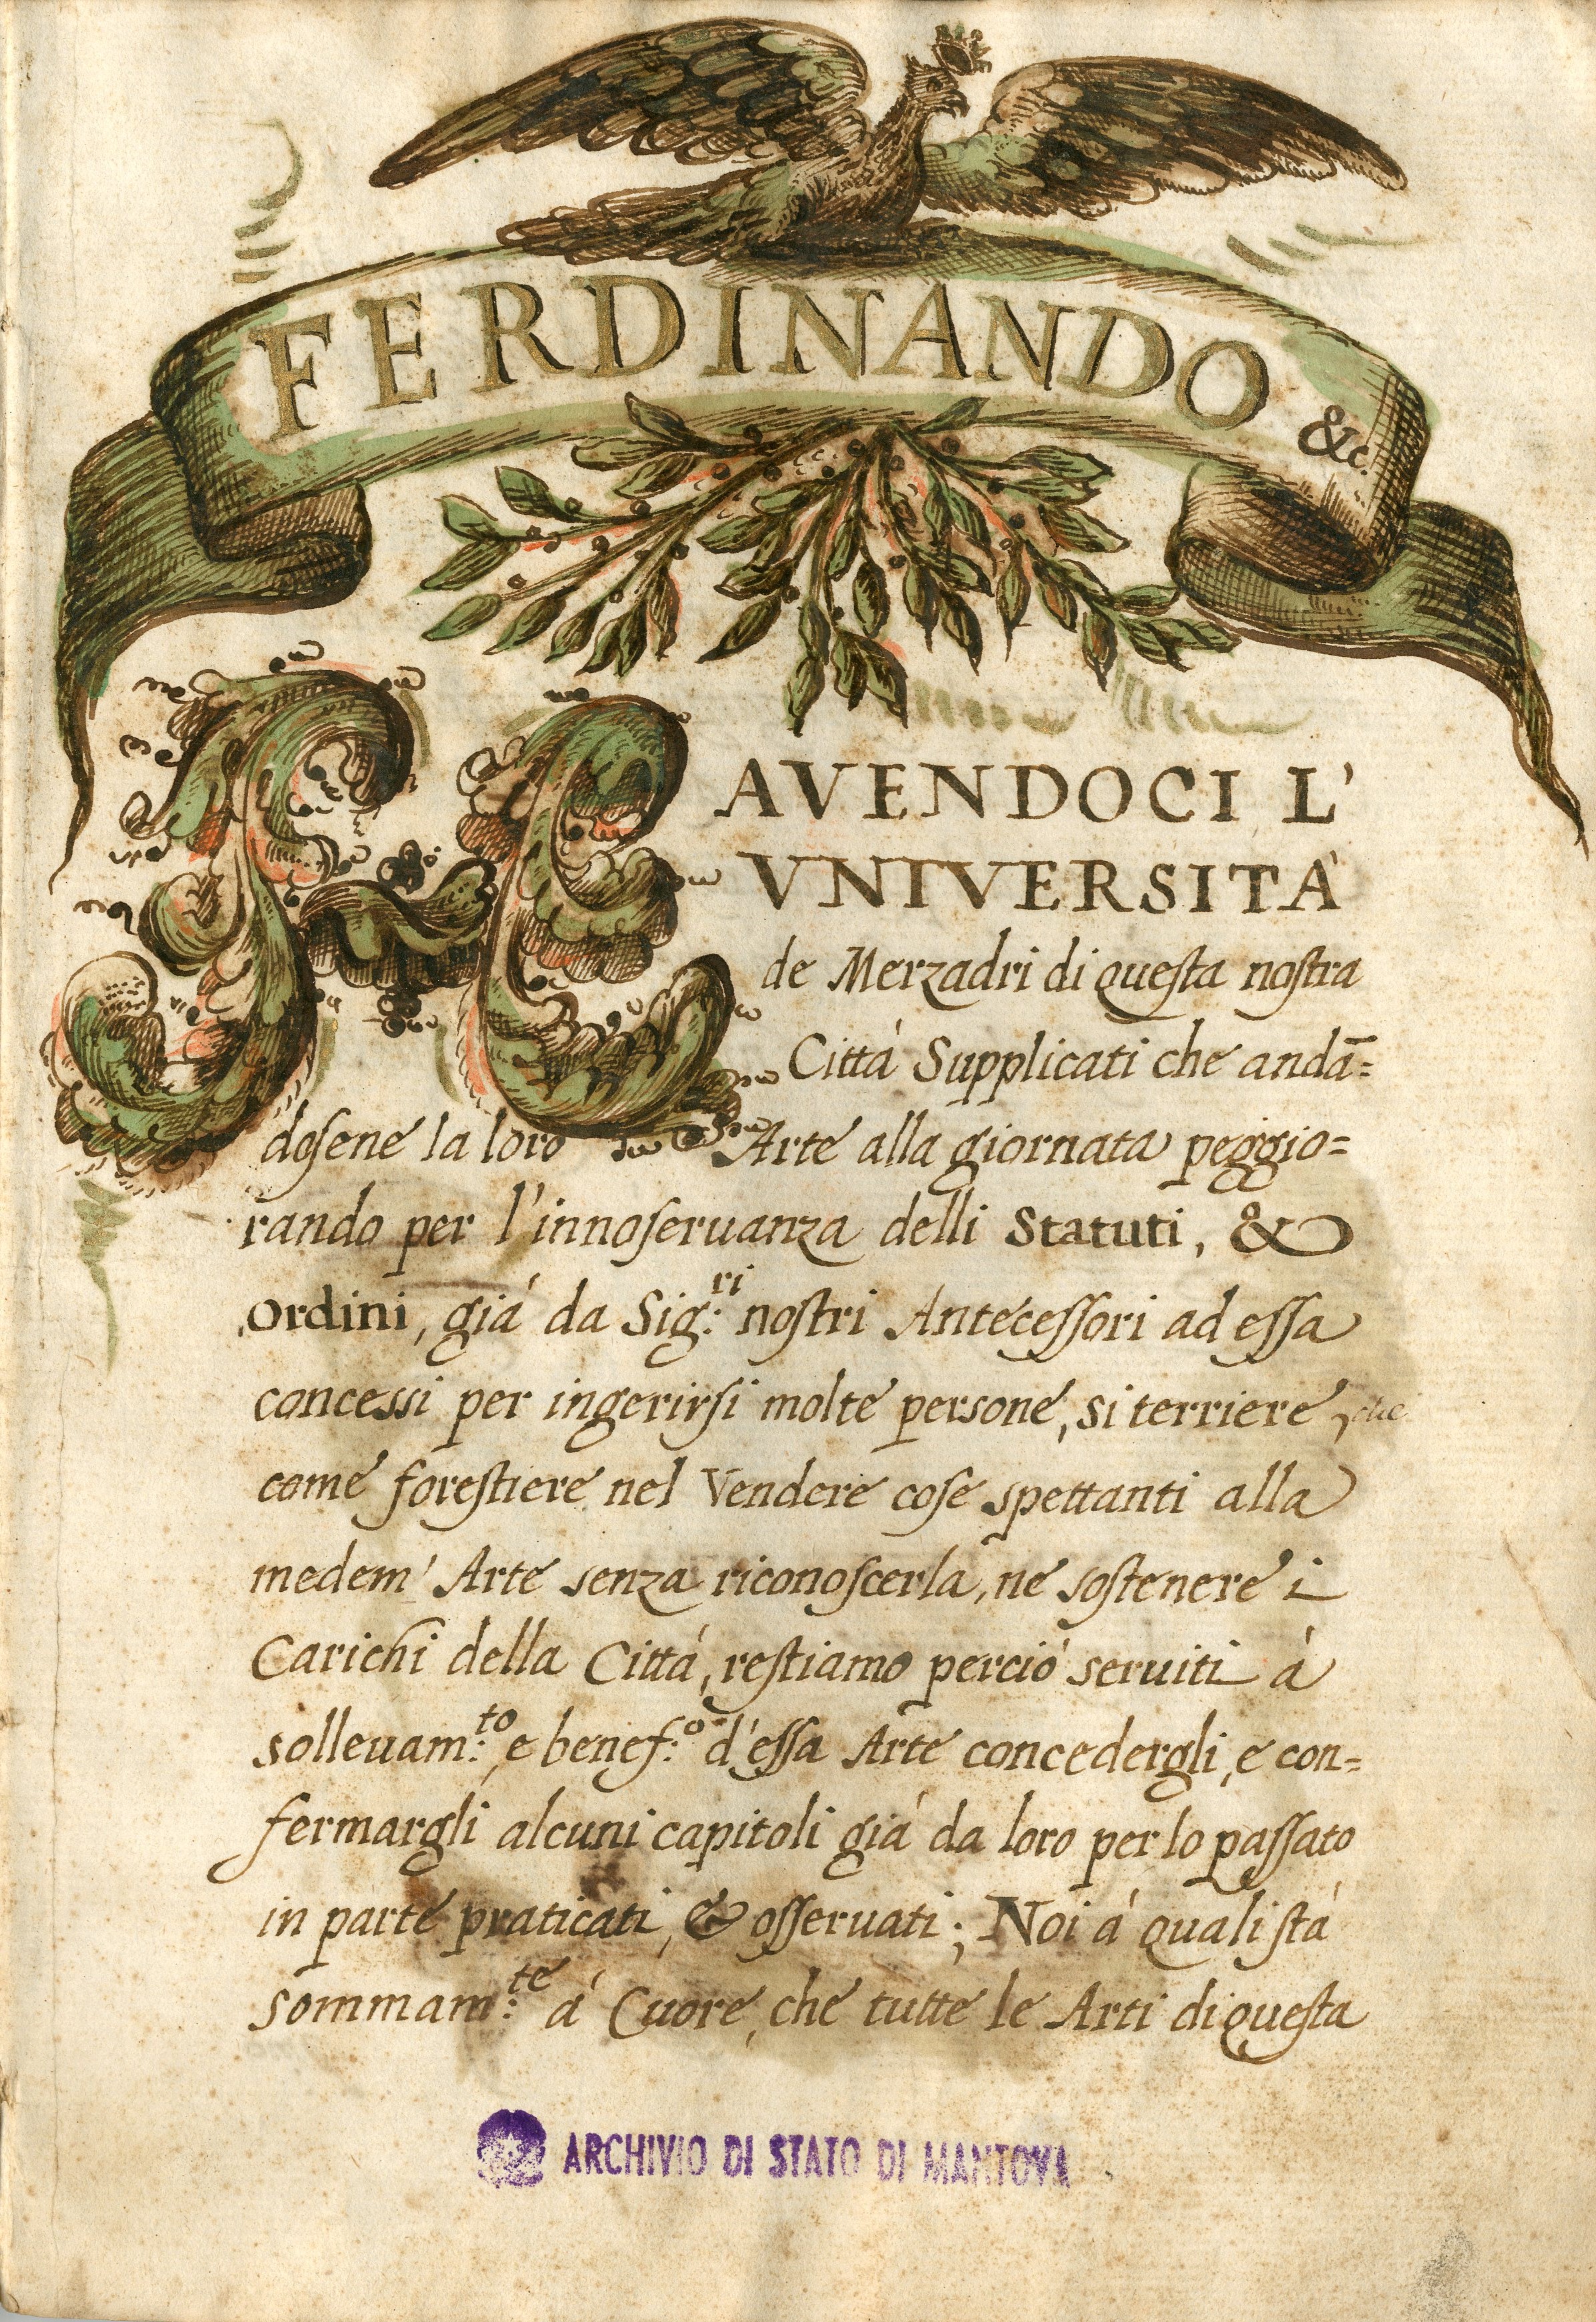 FERDINANDO &c.
HAVENDOCI L'
VNIVERSITÀ
de Merzadri di questa nostra
Città Supplicati che andā=
dosene la loro Arte alla giornata peggio=
rando per l'innoseruanza delli Statuti, &
Ordini, già da Sig:ri nostri Antecessori ad essa
concessi per ingerirsi molte persone, si terriere, che
come forestiere nel Vendere cose spettanti alla
medem' Arte senza riconoscerla, ne sostenere i
Carichi della Città, restiamo perciò seruiti à
solleuam:to, e benef:o d'essa Arte concedergli, e con=
fermargli alcuni capitoli già da loro per lo passato
in parte praticati, & osseruati; Noi à quali stà
sommam:te à Cuore, che tutte le Arti di questa
ARCHIVIO DI STATO DI MANTOVA